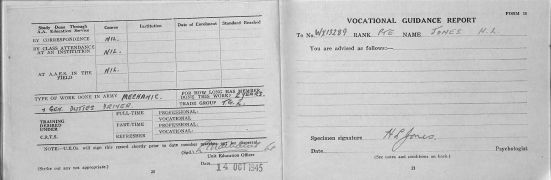 Study Done Through A.A. Education Service
Course
Institution
Date of Enrolment
Standard Reached
BY CORRESPONDENCE
NIL.
BY CLASS ATTENDANCE AT AN INSTITUTION
NIL.
AT A.A.E.S. IN THE FIELD
NIL.
TYPE OF WORK DONE IN ARMY MECHANIC.
FOR HOW LONG HAS MEMBER DONE THIS WORK? 2 YEARS.
& GEN. DUTIES DRIVER
TRADE GROUP
TRAINING DESIRED UNDER C.R.T.S.
FULL-TIME
PROFESSIONAL:
VOCATIONAL
PART-TIME
PROFESSIONAL:
VOCATIONAL:
REFRESHER
NOTE:—U.E.Os. will sign this record shortly prior to date member marches out for dispersal.
(Sgd.)
Unit Education Officer
Date 14 OCT 1945
(Strike out any not appropriate.)
20
FORM 18
VOCATIONAL GUIDANCE REPORT
To No. WX13289 RANK PTE NAME JONES H.L.
You are advised as follows:—
Specimen signature HL Jones.
Date
Psychologist
(See notes and conditions on back.)
21